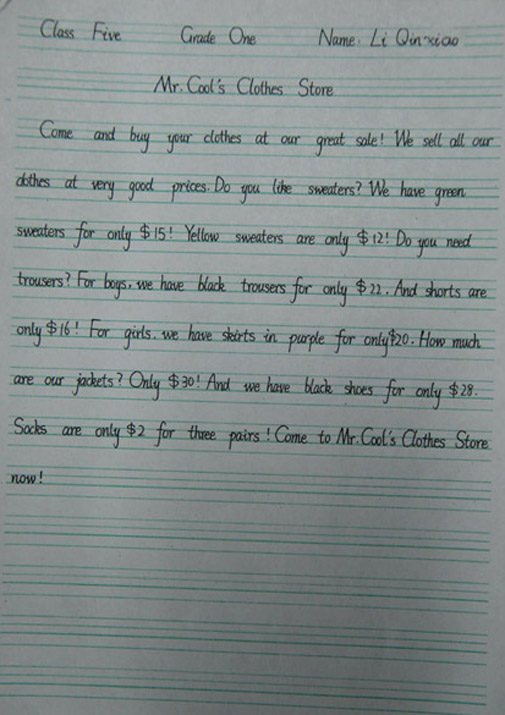 Class Five Grade One Name: Li Qinxiao
Mr. Cool's Clothes Store
Come and buy your clothes at our great sale! We sell all our
clothes at very good prices. Do you like sweaters? We have green
sweaters for only $15! Yellow sweaters are only $12! Do you need
trousers? For boys, we have black trousers for only $22. And shorts are
only $16! For girls, we have skirts in purple for only $20. How much
are our jackets? Only $30! And we have black shoes for only $28.
Socks are only $2 for three pairs! Come to Mr. Cool's Clothes Store
now!